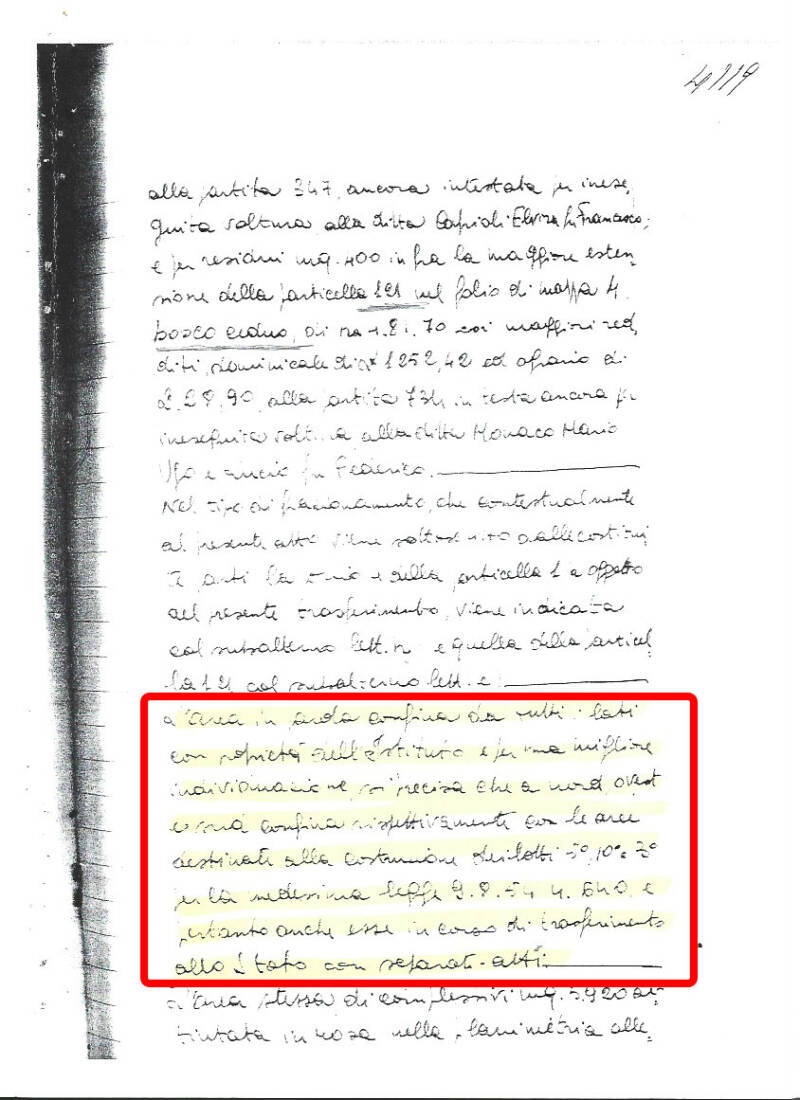 4119
alla partita 347, ancora intestata per inese,
guita voltura alla ditta Caprioli Elvira fu Francesco;
e per residui mq. 400 in fra la maggiore esten-
sione della particella 121 nel folio di mappa 4
bosco ceduo, di Ha 1.81.70 coi maggiori red,
diti, dominicale di £ 1252,42 ed agrario di
£. 28,90, alla partita 734 in testa ancora per
ineseguita voltura alla ditta Monaco Mario
Ugo e Lucio fu Federico.
Nel tipo di frazionamento, che contestualmente
al presente atto viene sottoscritto dalle costitui,
te parti la della particella 1 oggetto
del presente trasferimento, viene indicata
col subalterno lett. n e quella della particel
la 121 col subalterno lett. e
L'area in parola confina da tutti i lati
con proprietà dell'Istituto e per una migliore
individuazione, si precisa che a nord, ovest
e sud confina rispettivamente con le aree
destinate alla costruzione dei lotti 5°, 10° e 3°
per la medesima legge 9.8.54 n. 640, e
pertanto anche esse in corso di trasferimento
allo Stato con separati atti.
L'area stessa di complessivi mq. 5.920 at-
tintata in rosa nella planimetria alle,